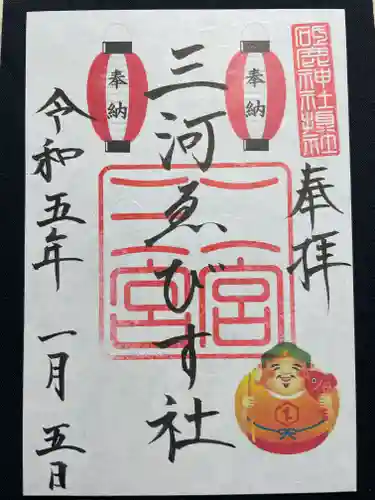 奉拝
三河ゑびす社
令和五年 一月 五日
奉納
奉納
三河一宮